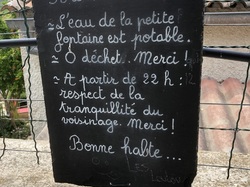 ~ L'eau de la petite
fontaine est potable.
~ O déchet.. Merci !
~ A partir de 22 h :
respect de la
tranquillité du
voisinage. Merci !
Bonne halte...